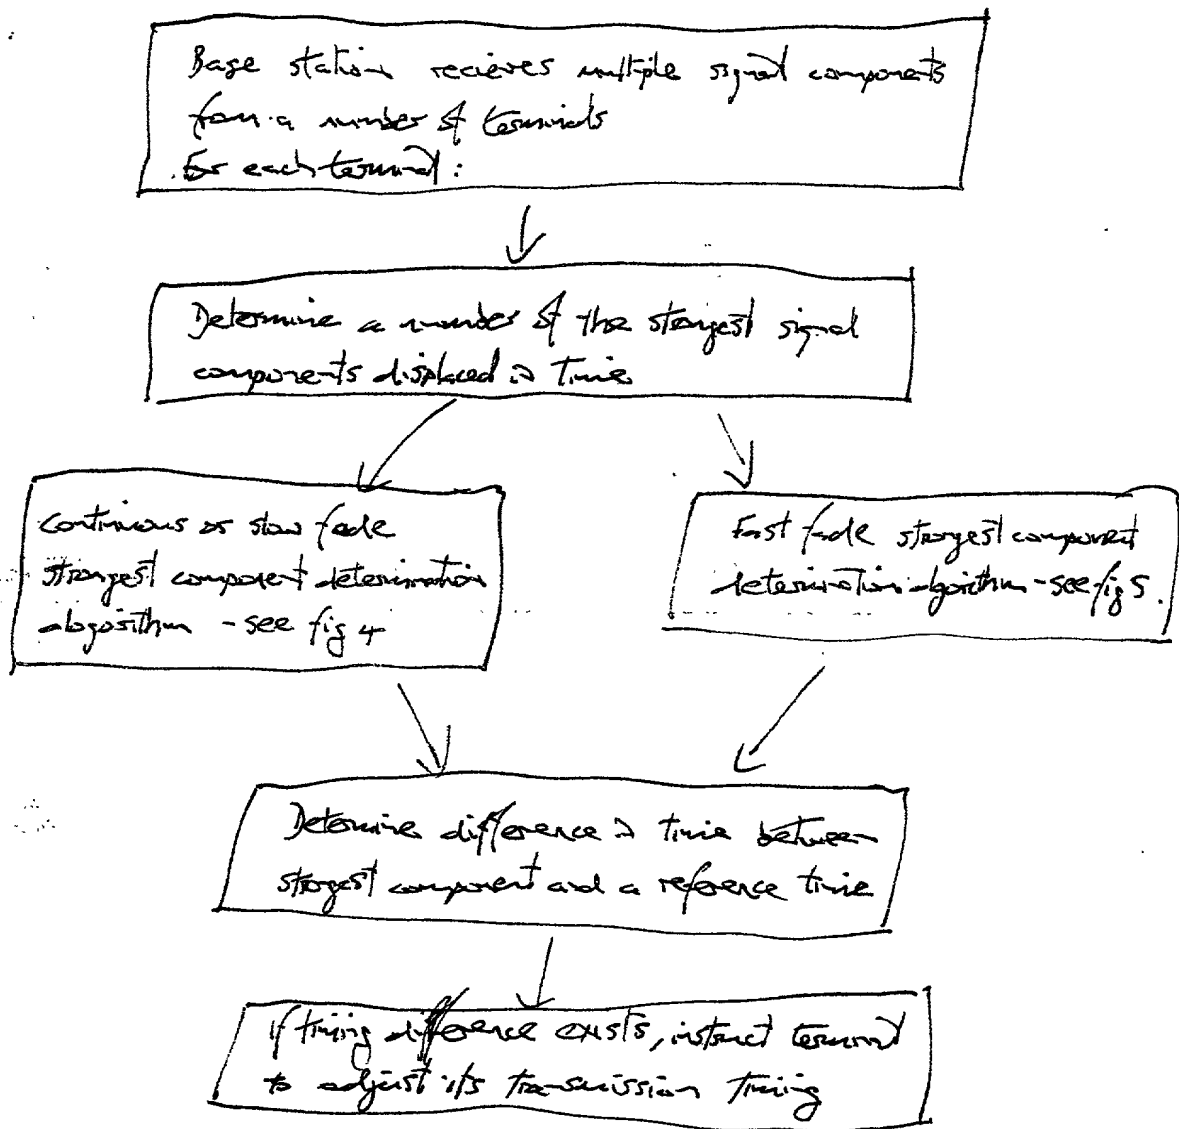 Base station recieves multiple signal components
from a number of terminals
For each terminal :
Determine a number of the strongest signal
components displaced in time
Continuous or slow fade
strongest component determination
algorithm - see fig 4
Fast fade strongest component
determination algorithm - see fig 5.
Determine difference in time between
strongest component and a reference time
If timing difference exists, instruct terminal
to adjust its transmission timing